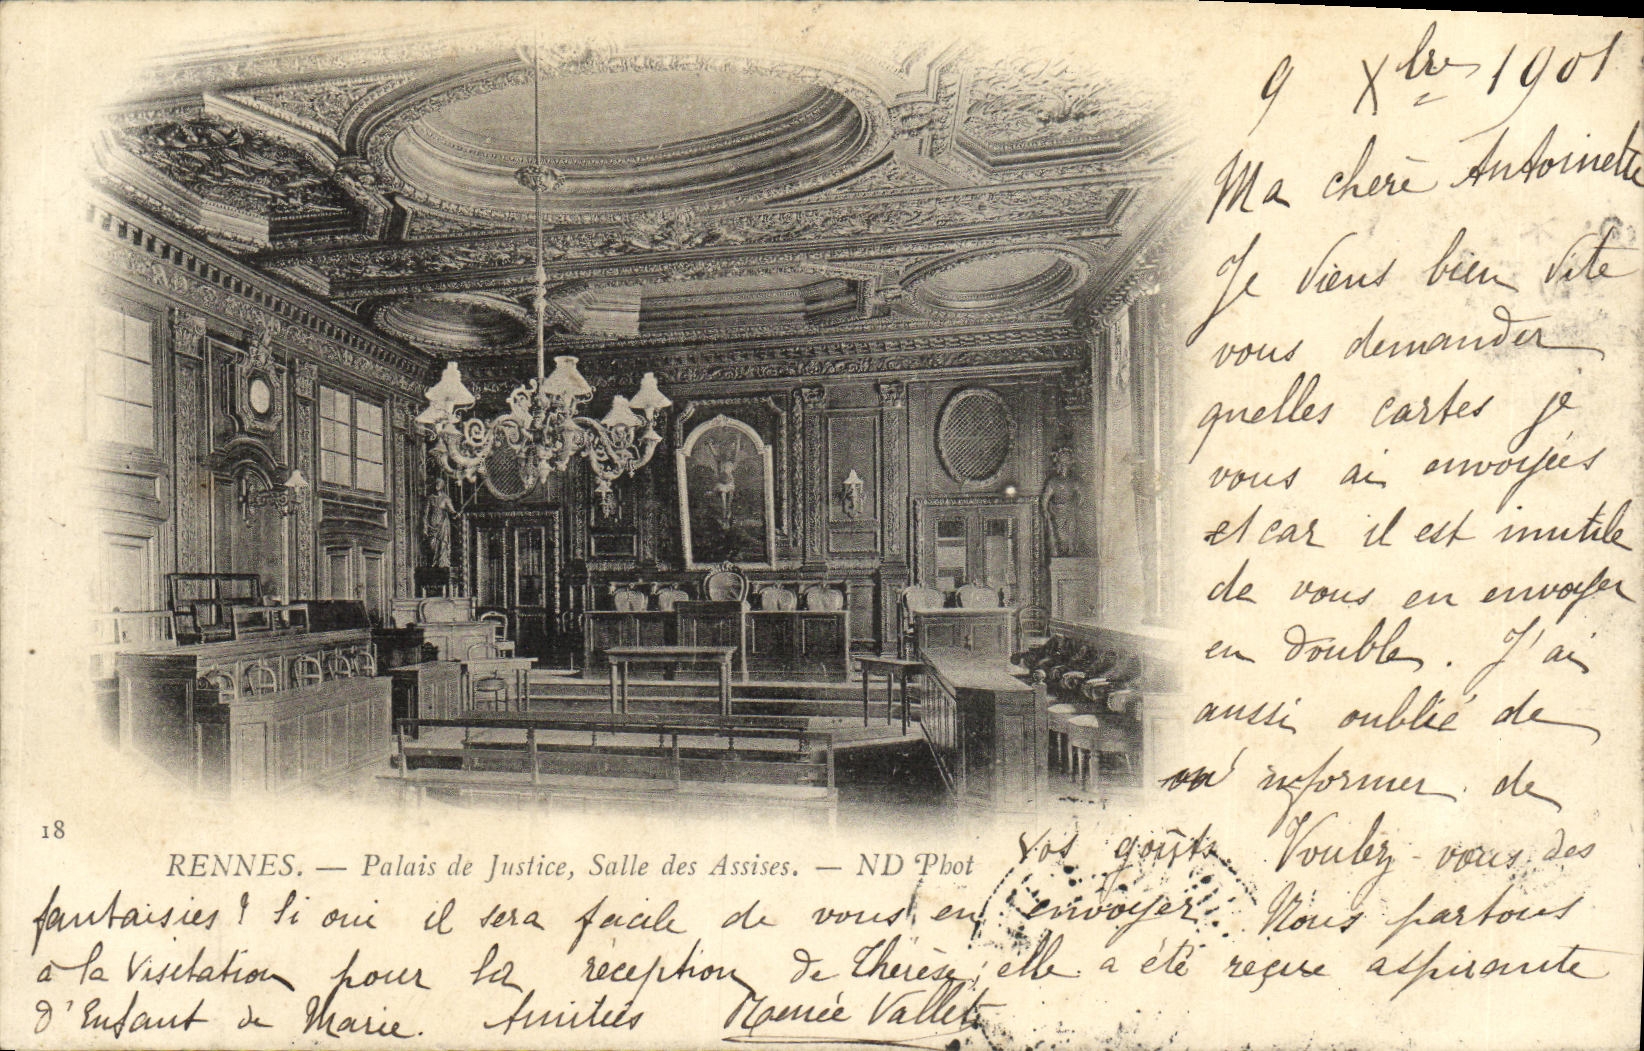 9 Xbre 1901
Ma chere Antoinette
Je viens bien vite
vous demander
quelles cartes je
vous ai envoyées
et car il est inutile
de vous en envoyer
en double. J'ai
aussi oublié de
m'informer de
vos goûts. Voulez-vous des
18
RENNES. — Palais de Justice, Salle des Assises. — ND Phot
fantaisies? Si oui il sera facile de vous en envoyer. Nous partons
a la Visitation pour la réception de Thérèse; elle a été reçue aspirante
d'Enfant de Marie. Amitiés Renée Vallet